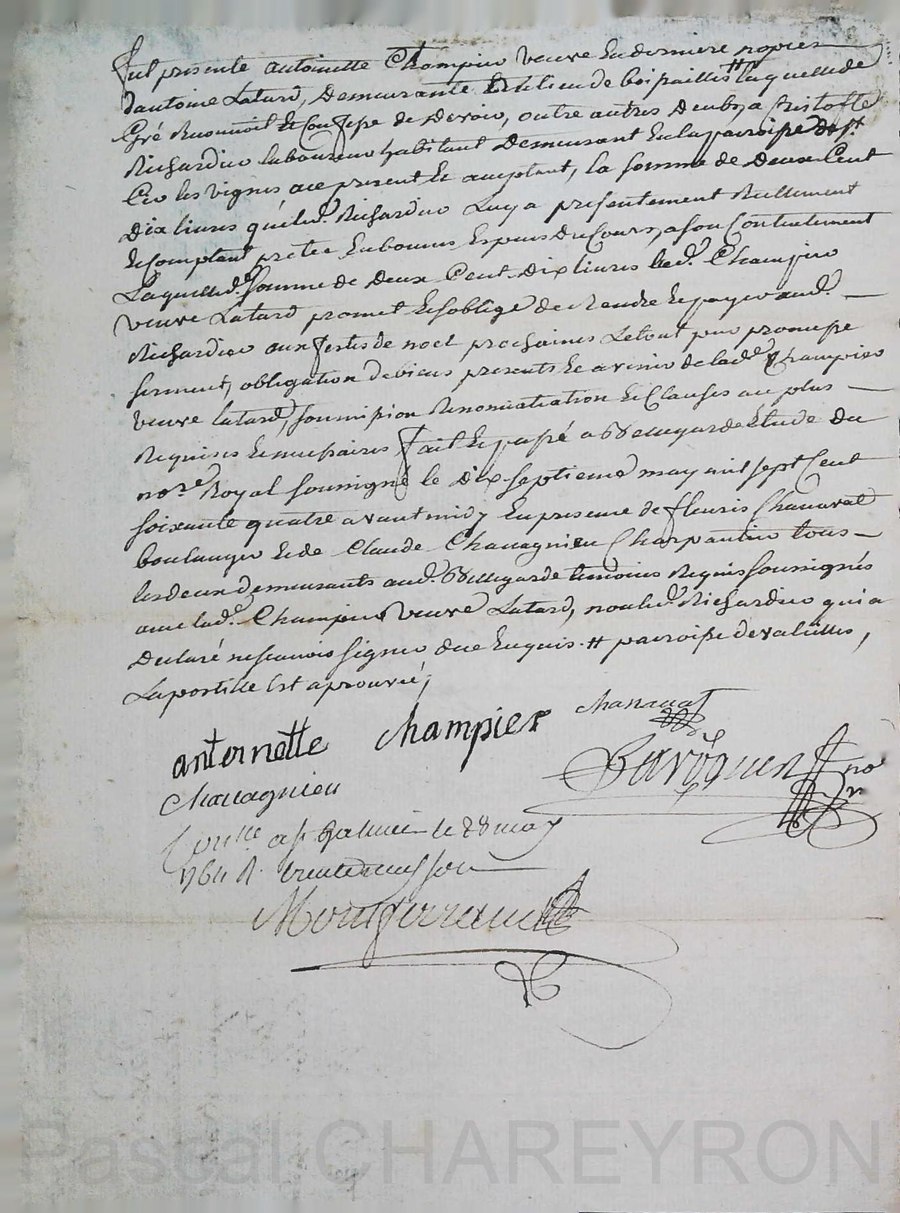 Fut presente antoinette Champier veuve en derniere nopces
dantoine Latard, Demeurante au lieu de boipaillis # laquelle de
Gré Reconnoit et Confesse de Devoir, outre autres Deubs, a Cristofle
Richardier laboureur habitant Demeurant en la paroisse de st
Cir les vignes acy present et acceptant, la somme de Deux Cent
Dix livres quiled. Richardier Luy a présentement Reellement
et Comptant pretée en bonnes Especes du Cours, a son Contentement
Laquelled. somme de Deux Cent Dix livres lad. Champier
veuve Latard promet et soblige de Rendre et payer aud. —
Richardier aux festes de noel prochaines Le tout pour promesse
serment, obligation de biens presents et a venir de lade. Champier
veuve latard, soumission Renonciation et Clauses au plus —
Requises et necessaires fait et passé a Bellegarde Etude du
nore. Royal soussigné le Dix septieme may mil sept Cent
soixante quatre avant midy En presence de fleuris Chanavat
boulanger et de Claude Chavagnieu Charpantier tous —
les deux demeurants aud. Bellegarde temoins Requis soussignés
avec lad. Champier veuve Latard, non led. Richardier qui a
Declaré ne scavoir signer de ce Enquis. # paroisse de valeilles,
Lapostille est aprouvée;
antoinette Champier Chanavat
Chavagnieu
no. r.
Conlle. a st Galmier le 28 may
1764 R. trente neuf sols
Montferrand
Pascal CHAREYRON